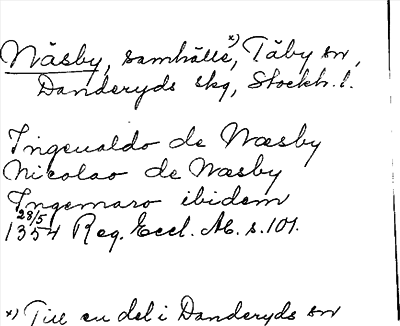 Näsby, samhälle,ˣ⁾ Täby sn,
Danderyds skg, Stockh. l.
Ingeualdo de Næsby
Nicolao de Næsby
Ingemaro ibidem
28/5
1354 Reg. Eccl. Ab. s. 101.
x) Till en del i Danderyds sn